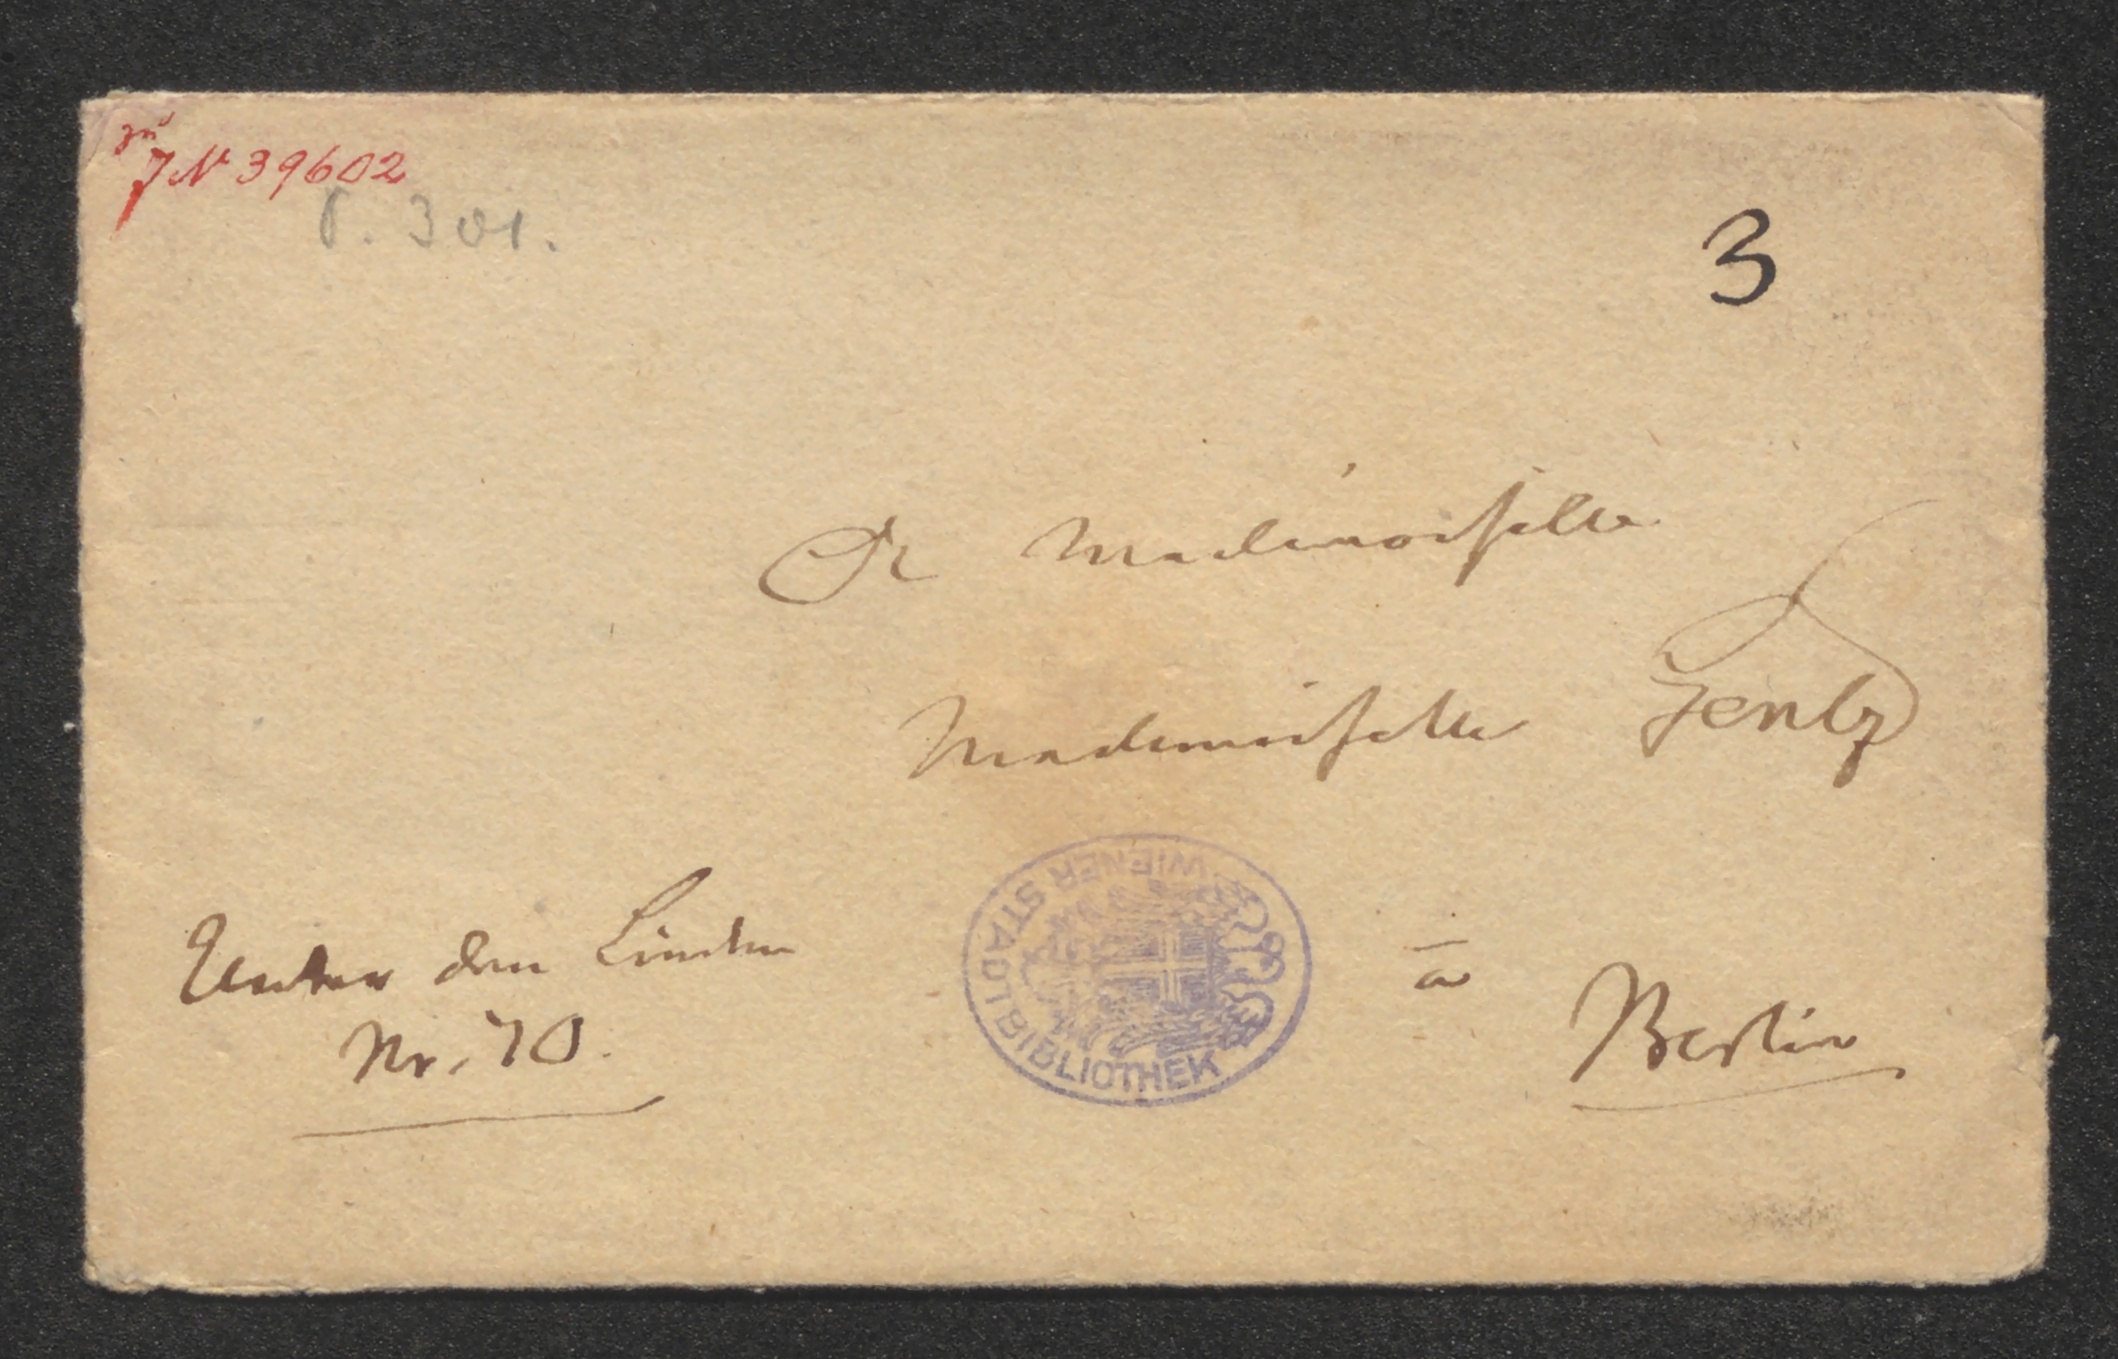 zu
JN 39602
S. 301.
3
A Mademoiselle
Mademoiselle Gentz
Unter den Linden
Nr. 70.
à
Berlin
WIENER STADTBIBLIOTHEK